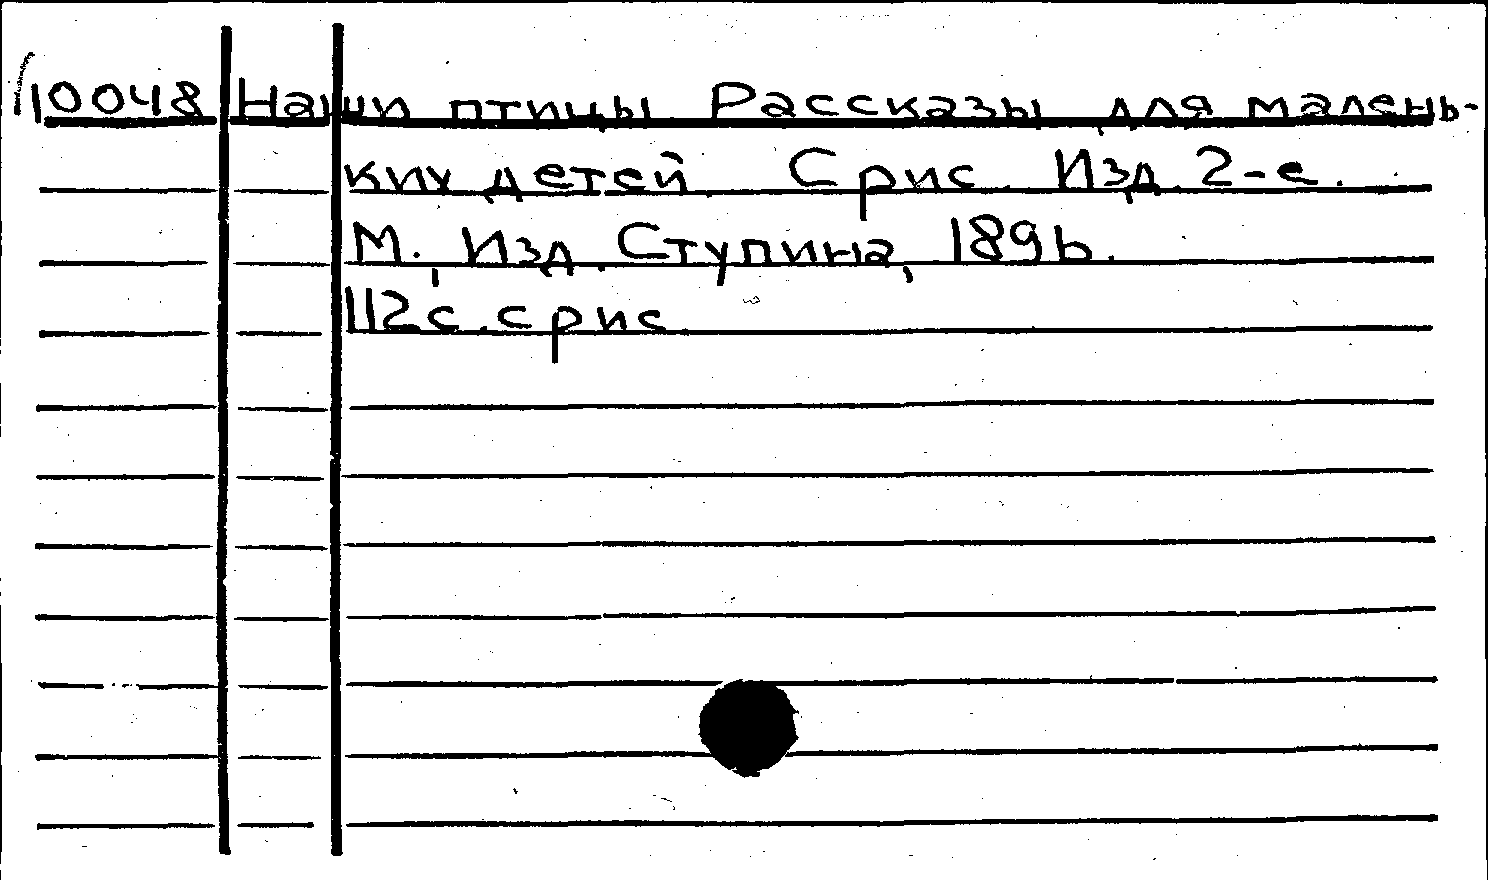 10048 Наши птицы Рассказы для малень-
ких детей. С рис. Изд. 2-е.
М., Изд. Ступина, 1896.
112с. с рис.